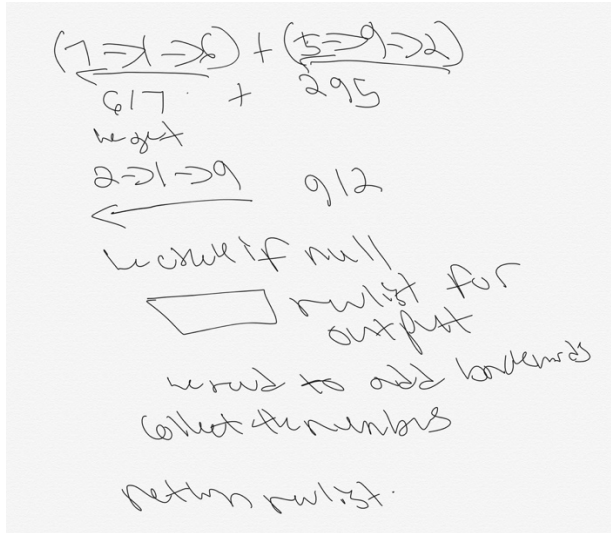 (7 => 1 => 6) + (5 => 9 => 2)
617 + 295
we get
2 => 1 => 9 912
we check if null
newlist for
output
we need to add backwards
collect the numbers
return newlist.